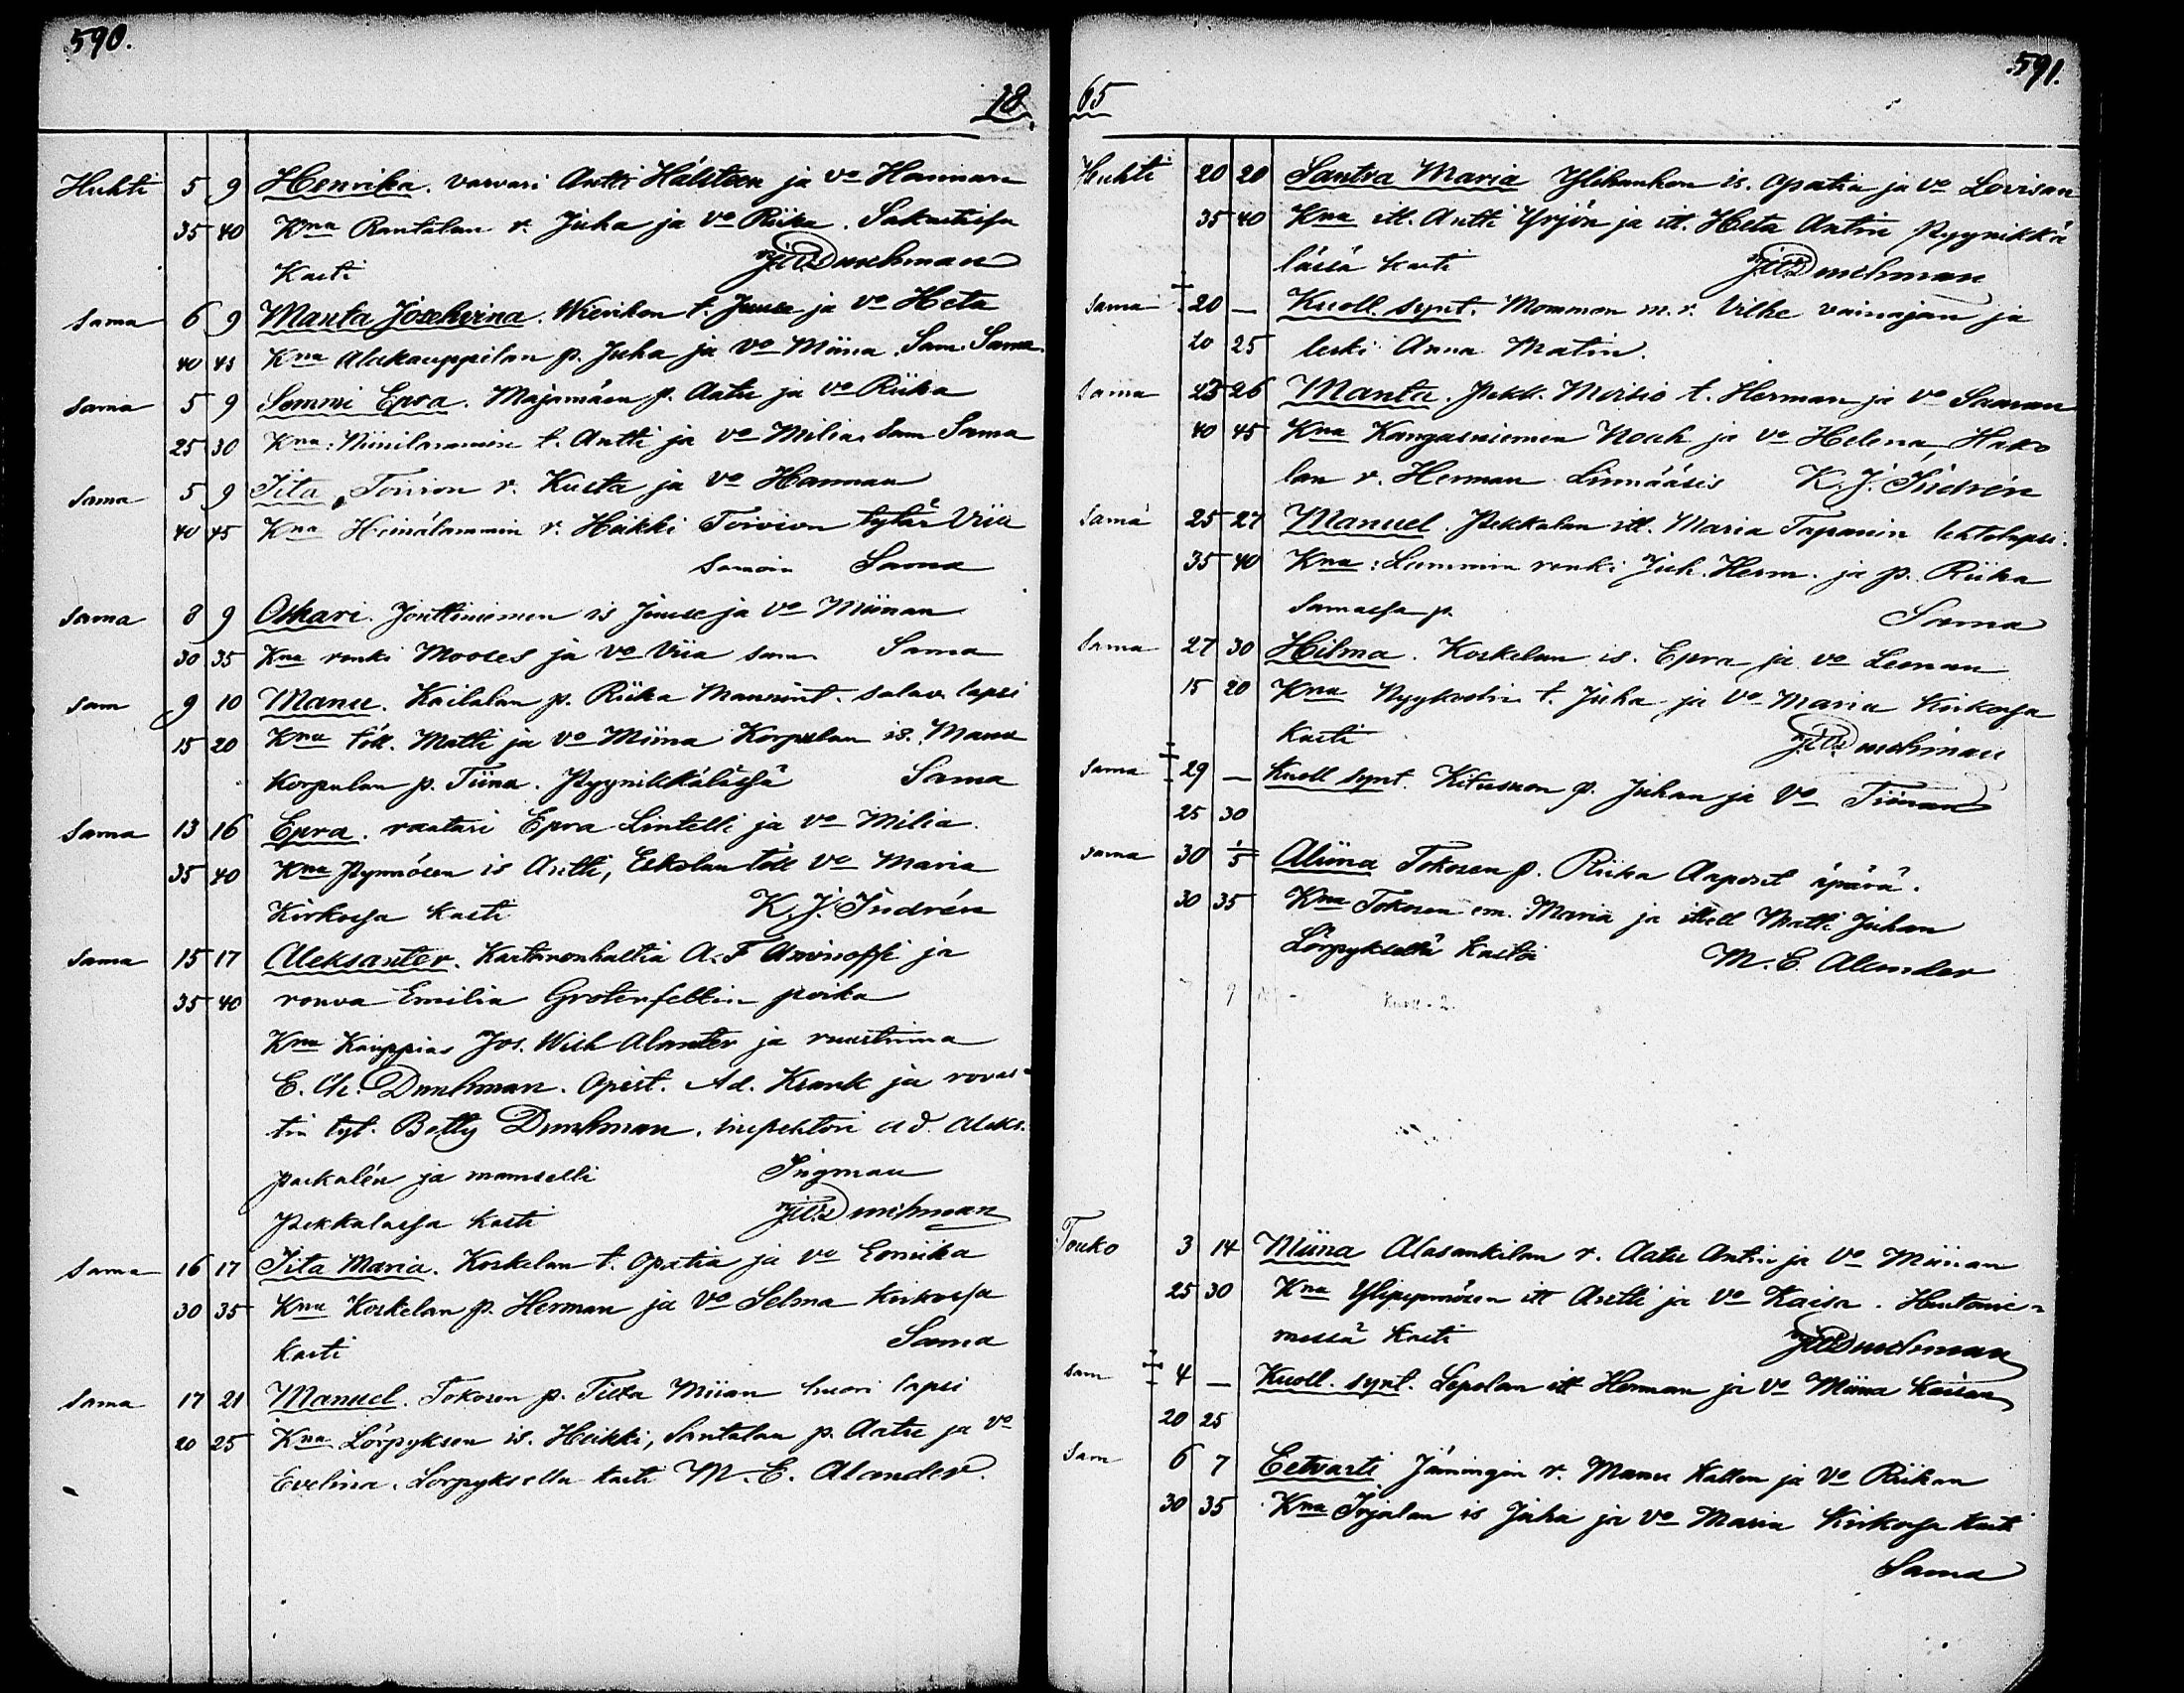 590.
18
Huhti 5 9 Henrika. varvari Antti Hälsteen ja vo Hannan
35 40 Kna Rantalan r. Juha ja vo Riika. Sakastissa
Kasti
sama 6 9 Manta Josehvina. Wierikon t. Juuse ja vo Heta
40 45 Kna Alakauppilan p. Juha ja vo Miina. Sam. Sama
sama 5 9 Sommi Epra. Majamäen p. Aatu ja vo Riika
25 30 Kna: Niinilammin t. Antti ja vo Milia. Sam Sama
sama 5 9 Iita, Toivion r. Kusta ja vo Hannan
40 45 Kna Heinälammin r. Heikki Toivion tytär Viia
Samoin Sama
sama 8 9 Oskari. Jouttiniemen is Juuse ja vo Miinan
30 35 Kna renki Mooses ja vo Viia sam Sama
sam 9 10 Manu. Kailalan p. Riika salav. lapsi
15 20 Kna töll. Matti ja vo Miina Korpulan is. Manu
Korpulan p. Tiina. Pyynikkälässä Sama
sama 13 16 Epra. raatari Epra Lintelli ja vo Milia.
35 40 Kna Pynnösen is Antti, Eskolan töll vo Maria
Kirkossa kasti K. J. Indrén
sama 15 17 Aleksanter. Kartanonhaltia A. F Aminoffi ja
35 40 rouva Emilia Grotenfeltin poika
Kna Kauppias Jos. Wilh Alanter ja ruustinna
E. Ch. Dunkman. Opist. Ad. Krank ja rovas-
tin tyt. Betty Dunkman. inspehtori Ad. Aleks.
ja mamselli Ingman
Pekkalassa kasti
sama 16 17 Iita Maria. Koskelan t. Opatia ja vo Enriika
30 35 Kna Koskelan p. Herman ja vo Selma Kirkossa
kasti Sama
sama 17 21 Manuel. Tokosen p. Miian huori lapsi
20 25 Kna Lörpyksen is. Heikki, Santalan p. Aatu ja vo
Evelina. Lörpyksellä kasti M. E. Alander.
591.
65
Huhti 20 20 Santra Maria Ylihankon is. Opatia ja vo Lovisan
35 40 Kna itl. Antti Yrjön ja itl. Heta Antin Pyynikkä
lässä kasti
sama 20 — Kuoll. synt. Mommon m. r. Vilhe vainajan ja
20 25 leski Anna Matin.
sama 25 26 Manta. Pekk. Moisio t. Herman ja vo Saaran
40 45 Kna Kangasniemen Noah ja vo Helena, Hako
lan r. Herman Linnääsis K. J. Indrén
sama 25 27 Manuel. Pekkalan itl. Maria Tapanin lehtolapsi.
35 40 Kna: Lammin renki Juh. Herm. ja p. Riika
Samassa p. Sama
sama 27 30 Hilma. Koskelan is. Epra ja vo Leenan
15 20 Kna t. Juha ja vo Maria Kirkossa
kasti
sama 29 — Kuoll synt. Kitusuon p. Juhan ja vo Tiinan
25 30
sama 30 1/5 Aliina Tokosen p. Riika Aaposit äpärä.
30 35 Kna Tokosen em. Maria ja itsell Matti Juhan
Lörpyksellä kasti M. E. Alander
Kuoll - 2.
Touko 3 14 Miina Alasankilan r. Aatu Antin ja vo Miinan
25 30 Kna Ylipynnösen itl Antti ja vo Kaisa. Hintonie-
messä kasti
sam 4 — Kuoll. synt. Lepolan itl Herman ja vo Miina Kaisan
20 25
sam 6 7 Eetvarti Jäningin r. Manu Kallen ja vo Riikan
30 35 Kna Irjalan is Juha ja vo Maria Kirkossa kasti
Sama